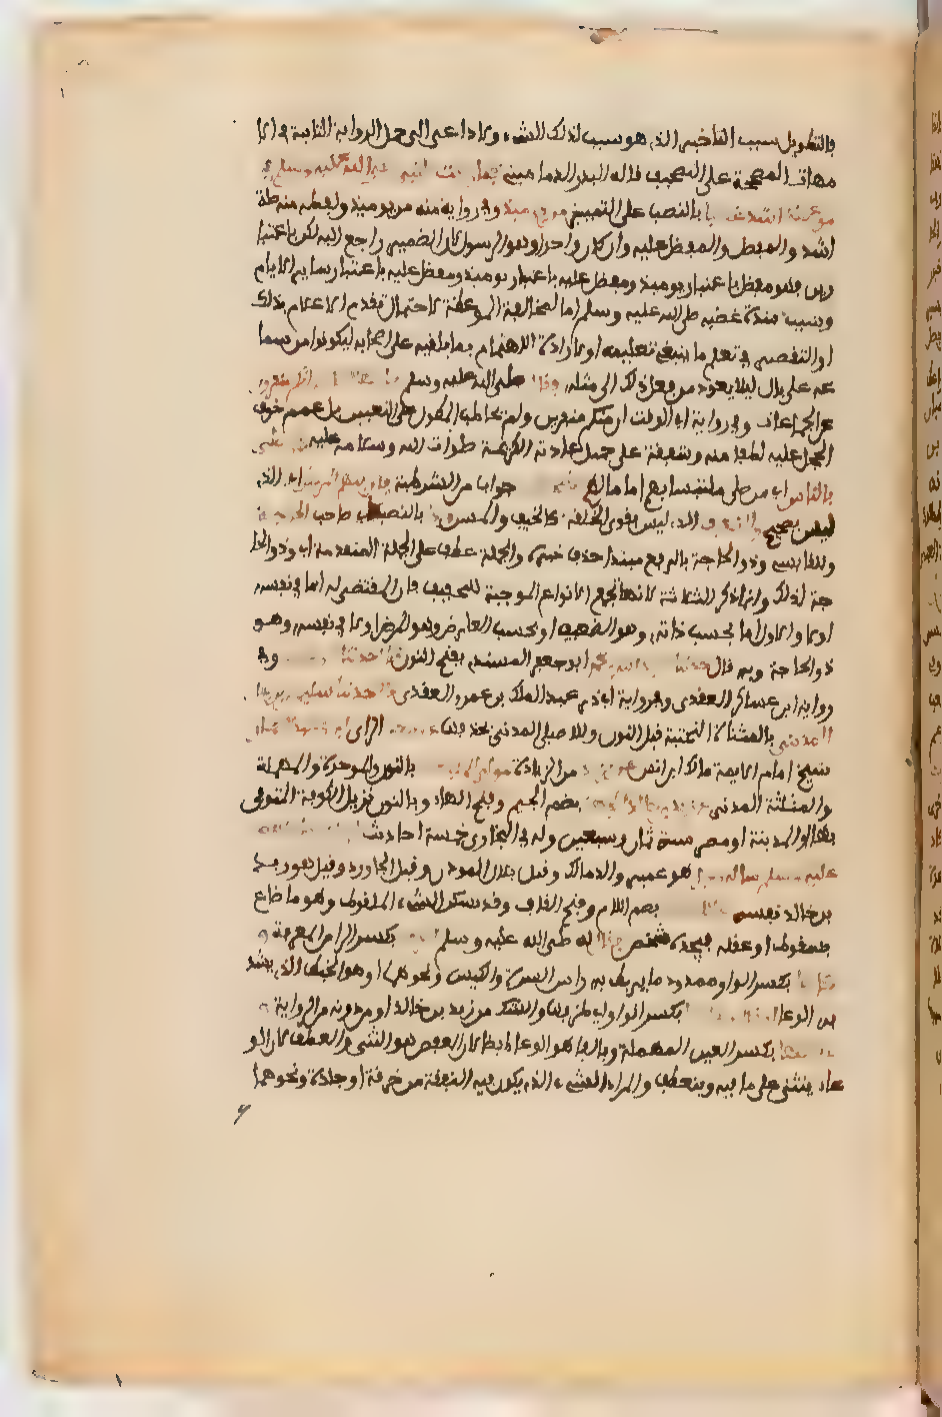 بالتطويل سبب التأخير الذى هو سبب لذلك الشىء ولا داعى الى حمل الرواية الثانية فى الا
مهات المصححة على التصحيف قاله البدر الدمامينى فما رايت النبى صلى الله عليه وسلم فى
موعظة اشد غضبا بالنصب على التمييز من يومئذ وفى رواية منه من يومئذ ولفظة منه صلة
اشد والمفضل والمفضل عليه وان كان واحدا وهو الرسول لان الضمير راجع اليه لكن باعتبا
رين فهو مفضل باعتبار يومئذ ومفضل عليه باعتبار سايرالايام
وسبب شدة غضبه صلى الله عليه وسلم اما لمخالفة الموعظة لاحتمال تقدم الاعلام بذلك
او التقصير فى تعلم ما ينبغى تعليمه او لارادة الاهتمام بما يلقيه على اصحابه ليكونوا من سما
عه على بال ليلا يعود من فعل ذلك الى مثله فقال صلى الله عليه وسلم يا ايها الناس انكم منفرون
عن الجماعات وفى رواية ابى الوقت ان منكم منفرين ولم يخاطب المطول على التعيين بل عمم خوف
الخجل عليه لطفا منه وشفقة على جميل عادته الكريمة صلوات الله وسلامه عليه فمن صلى
بالناس اى من صلى ملتبسا بهم اماما لهم فليخفف جواب من الشرطية فان فيهم المريض الذى
ليس بصحيح والضعيف الذى ليس بقوى الخلقة كالنحيف والمسن وذا بالنصب اى صاحب الحاجة
وللقابسى وذو الحاجة بالرفع مبتدا حذف خبره والجملة عطف على الجملة المتقدمة اى وذو الحا
جة كذلك وانما ذكر الثلاثة لانها تجمع الانواع الموجبة للتخفيف فان المقتضى له اما فى نفسه
اولا والاول اما بحسب ذاته وهو الضعف او بحسب العارض وهو المرض اولا فى نفسه وهو
ذو الحاجة وبه قال حدثنا عبد الله بن محمد ابو جعفر المسندى بفتح النون قال حدثنا وفى
رواية ابن عساكر العقدى وفى رواية ابى ذر عبد الملك بن عمرو العقدى قال حدثنا سليمان بن بلال
المدينى بالمثناة التحتية قبل النون وللاصيلى المدنى بحذفها عن ربيعة الراى
شيخ امام الايمة مالك ابن انس عن يزيد من الزيادة مولى المنبعث بالنون والموحدة والمهملة
والمثلثة المدنى عن زيد بن خالد الجهنى بضم الجيم وفتح الهاء وبالنون نزيل الكوفة المتوفى
بها او المدينة او مصر سنة ثمان وسبعين وله فى البخارى خمسة احاديث
عليه وسلم ساله رجل هو عمير والد مالك وقيل بلال المؤذن وقيل الجارود وقيل هو زيد
بن خالد نفسه عن اللقطة بضم اللام وفتح القاف وقد تسكن الشىء الملقوط وهو ما ضاع
بسقوط او غفلة فيجده شخص فقال له صلى الله عليه وسلم اعرف بكسر الراء من المعرفة
وكاءها بكسر الواو ممدودا ما يربط به راس الصرة والكيس ونحوهما او هو الخيط الذى يشد
به الوعاء بكسر الواو اى ظرفها والشك من زيد بن خالد او من دونه من الرواة
وعفاصها بكسر العين المهملة وبالفا هو الوعاء ايضا لان العفص هو الثنى والعطف لان الو
عاء ينثنى على ما فيه وينعطف والمراد الشىء الذى يكون فيه النفقة من خرقة او جلدة ونحوهما